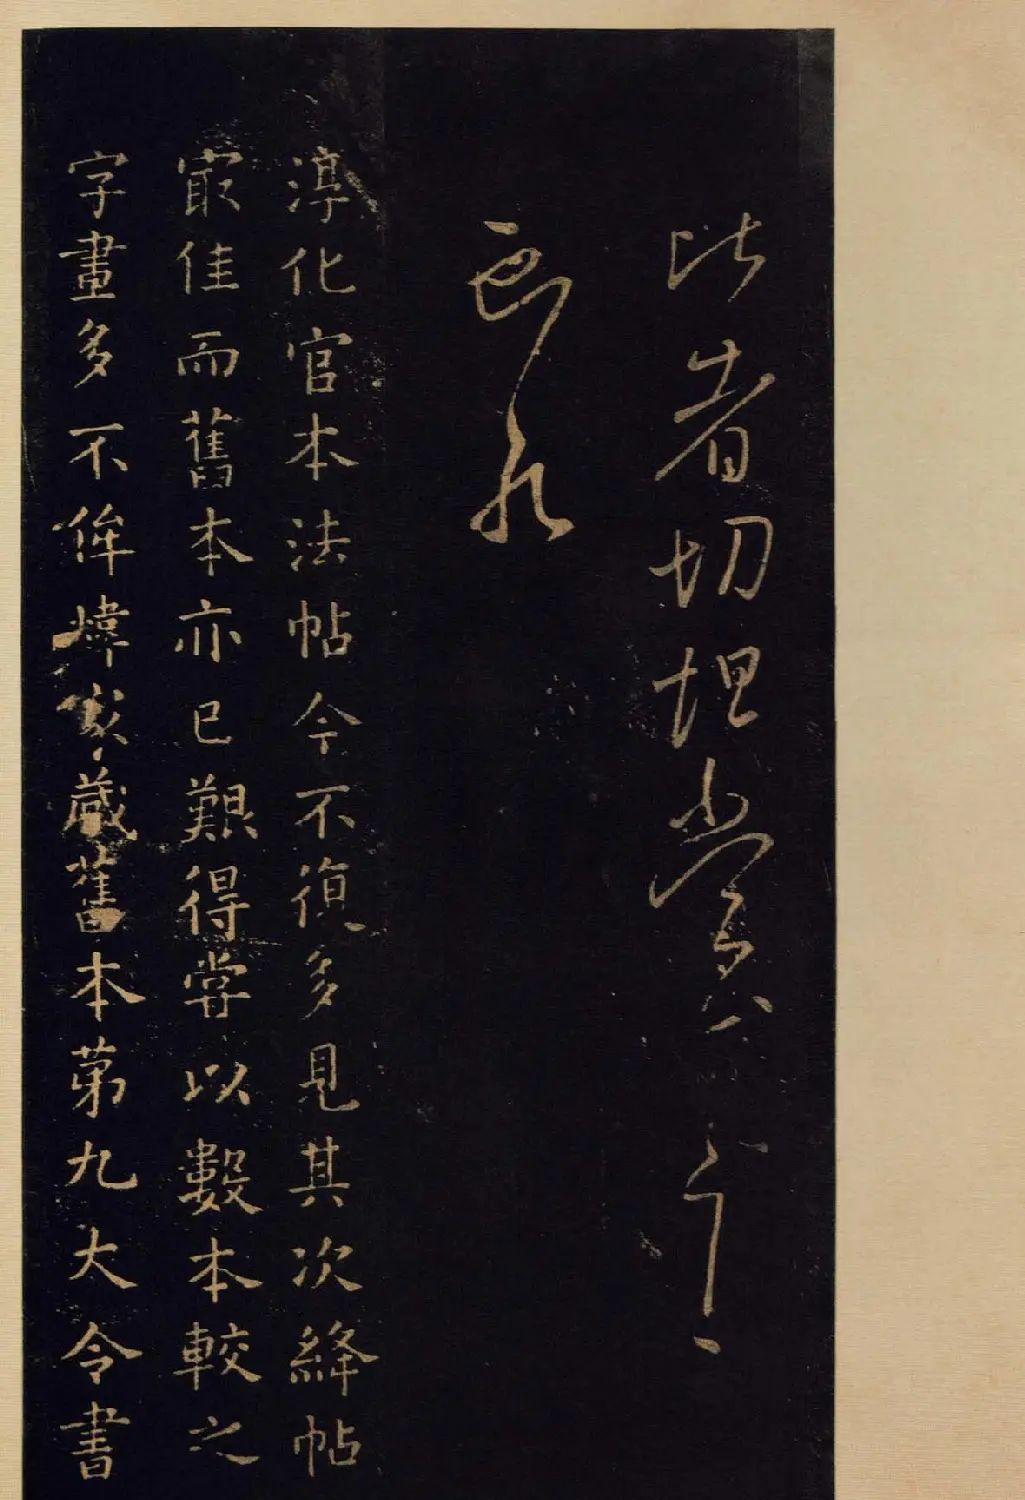 比者切
淳化官本法帖今不復多見其次絳帖
㝡佳而舊本亦已艱得嘗以數本較之
字畫多不侔煒家藏舊本第九大令書